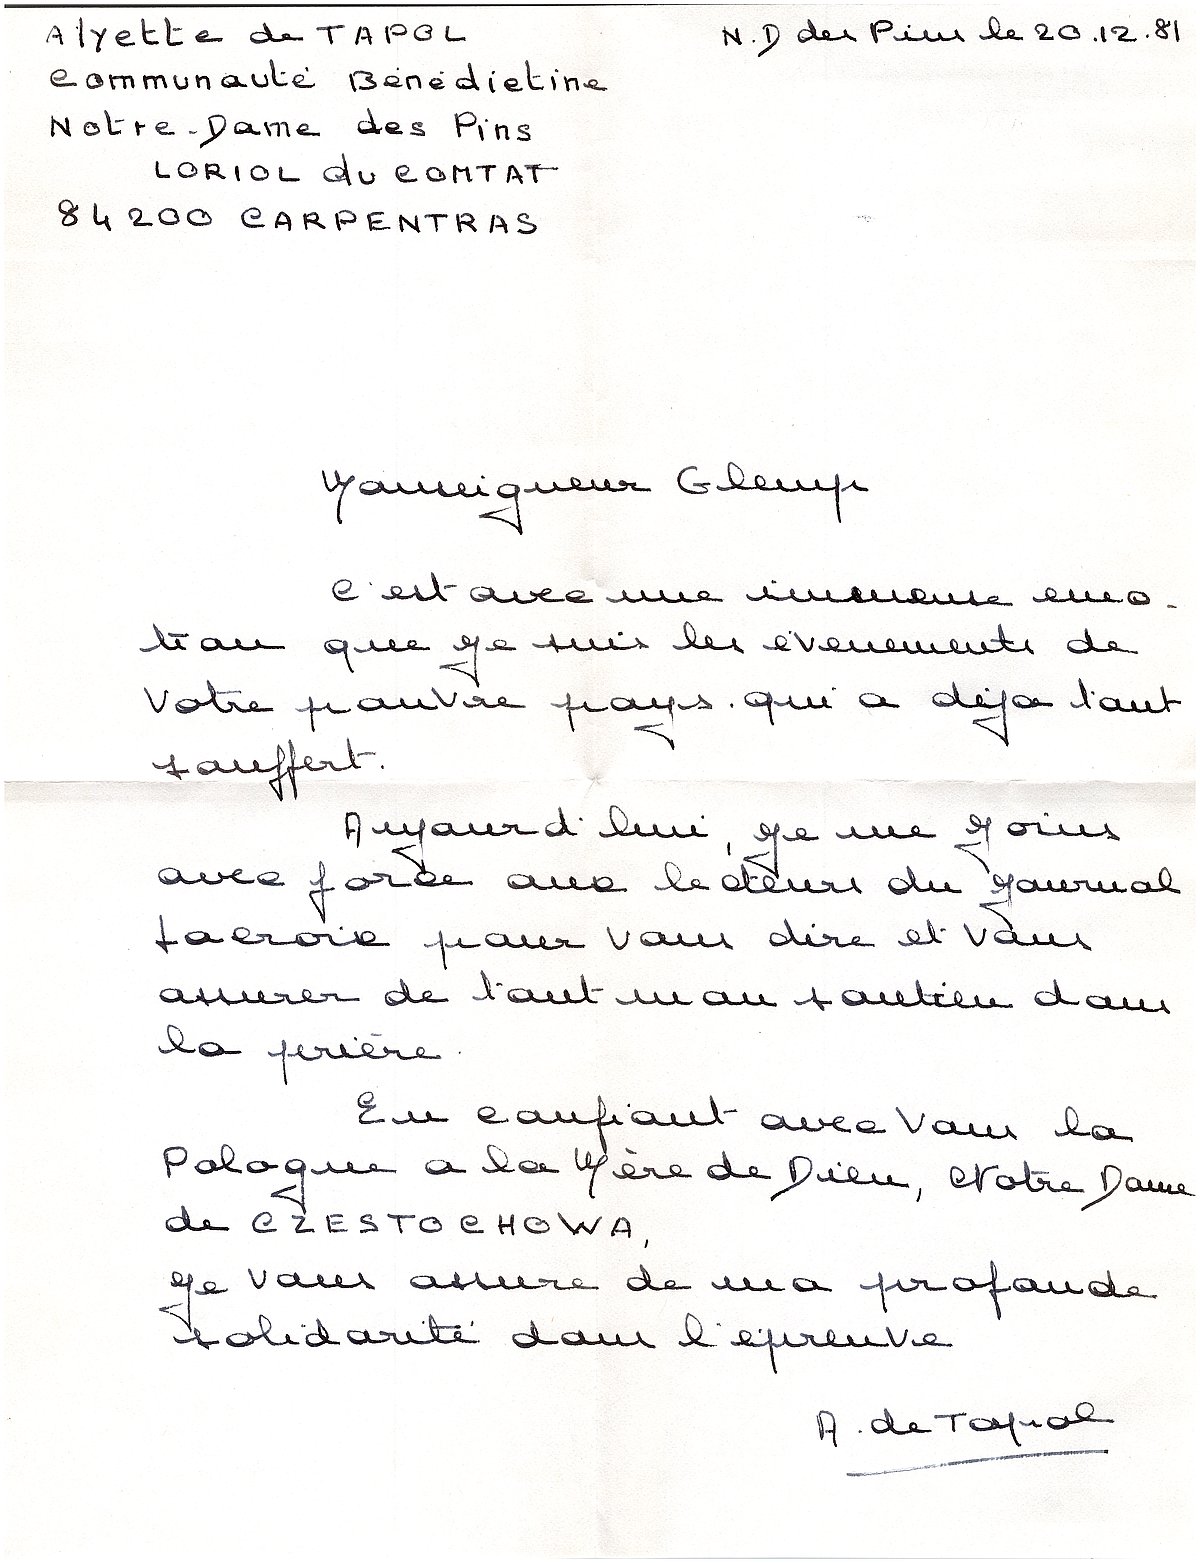 Alyette de TAPOL
N.D des Pins le 20.12.81
Communauté Bénédictine
Notre-Dame des Pins
LORIOL du COMTAT
84200 CARPENTRAS
Monseigneur Glemp
C'est avec une immense émo-
tion que je suis les évènements de
Votre pauvre pays. qui a déja tant
souffert.
Aujourd'hui, je me joins
avec force aux lecteurs du journal
La croix pour vous dire et vous
assurer de tout mon soutien dans
la prière.
En confiant avec vous la
Pologne a la Mère de Dieu, Notre Dame
de CZESTOCHOWA,
je vous assure de ma profonde
solidarité dans l'épreuve
A. de Tapol